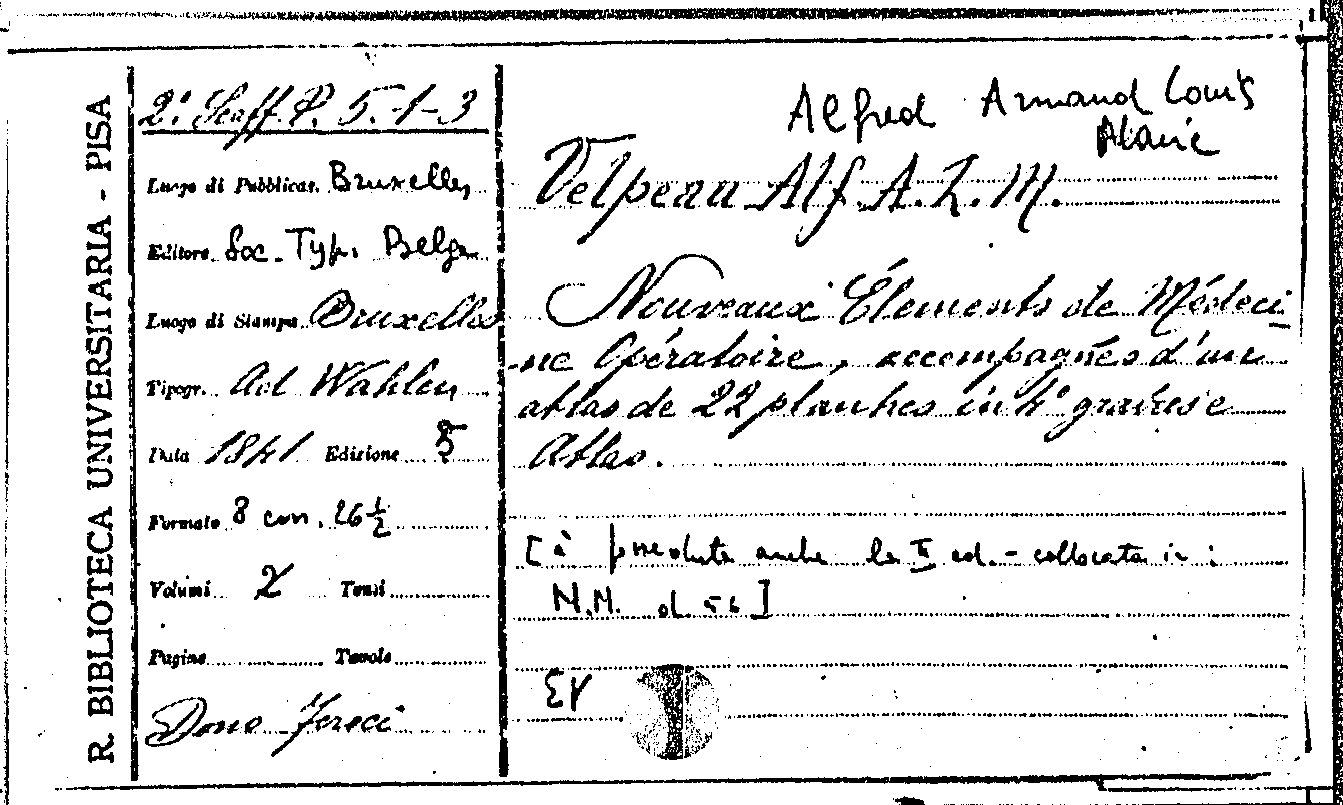 R. BIBLIOTECA UNIVERSITARIA - PISA
2ª Scaff. P. 5.-1-3
Luogo di Pubblicaz. Bruxelles
Editore Soc. Typ. Belge
Luogo di Stampa Bruxelles
Tipogr. Ad Wahlen
Data 1841 Edizione 5
Formato 8 cm. 26½
Volumi 2 Tomi
Pagine Tavole
Dono Feroci
Alfred Armand Louis
Marie
Velpeau Alf. A. L. M.
Nouveaux Élements de Médeci-
-ne Opératoire, accompagnés d'un
atlas de 22 planches in 4° gravés e
Atlas.
[è posseduta anche la II ed. - collocata in:
M.M. d 56]